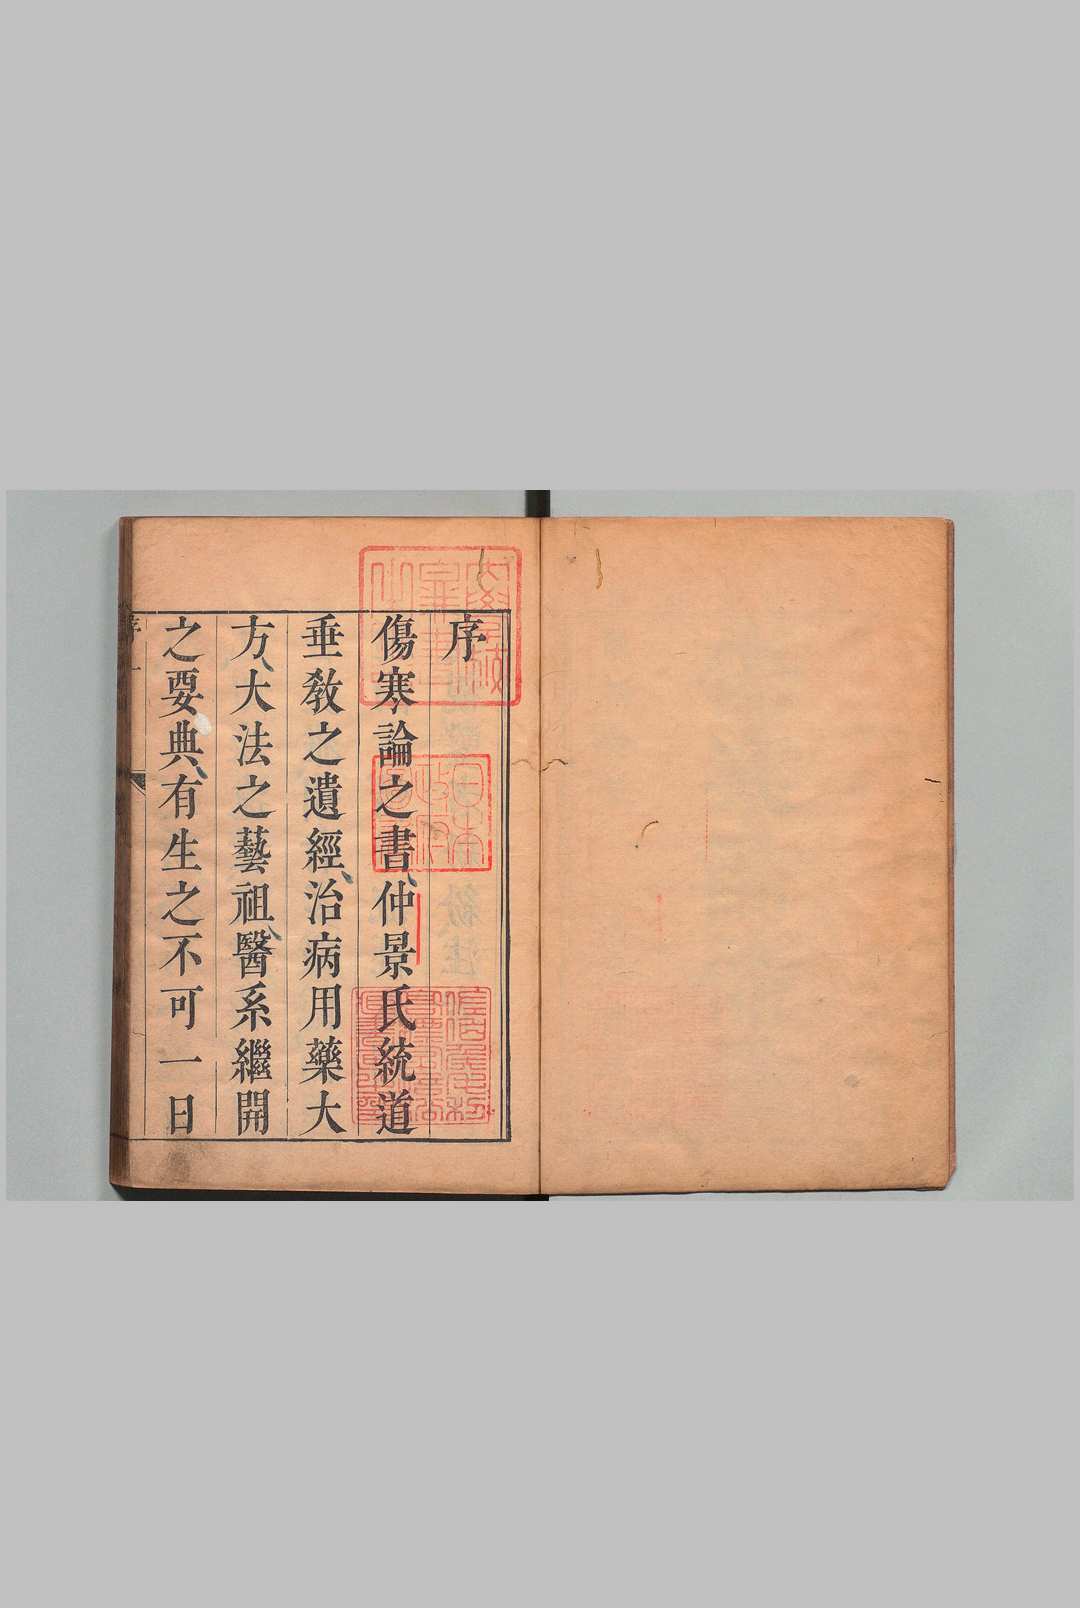 序
傷寒論之書、仲景氏統道
垂教之遺經、治病用藥大
方、大法之藝祖、醫系繼開
之要典、有生之不可一日
日本
政府
圖書